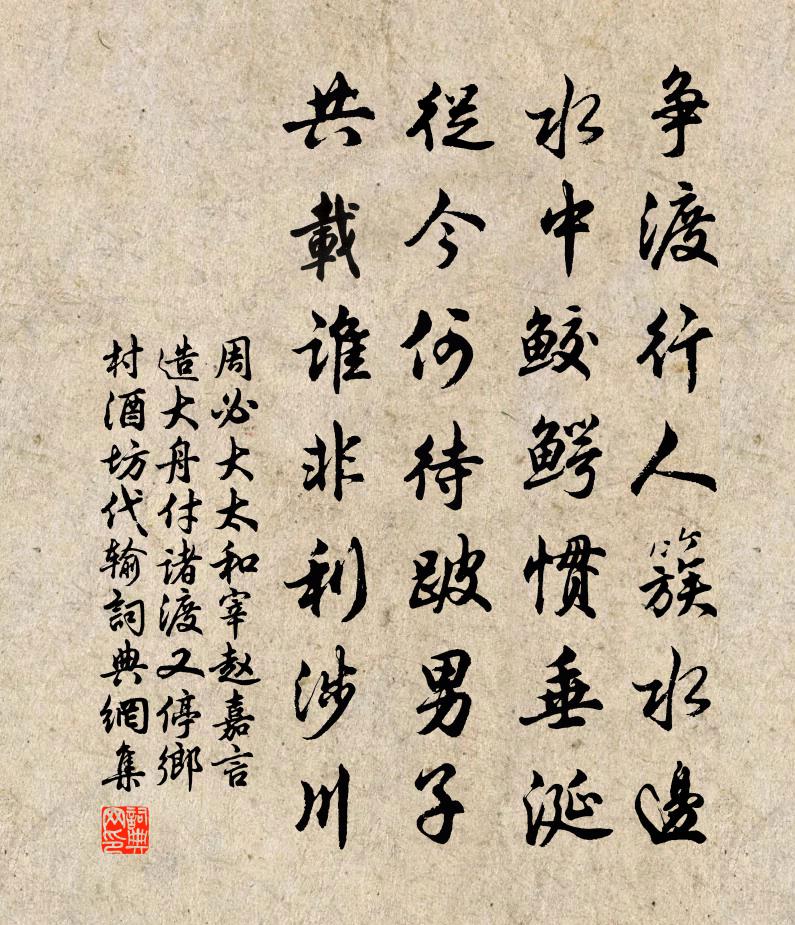 争渡行人簇水邊
水中鲛鳄慣垂涎
從今何待跛男子
共載誰非利涉川
周必大太和宰赵嘉言
造大舟付诸渡又停鄉
村酒坊代输詞典網集
詞典网印